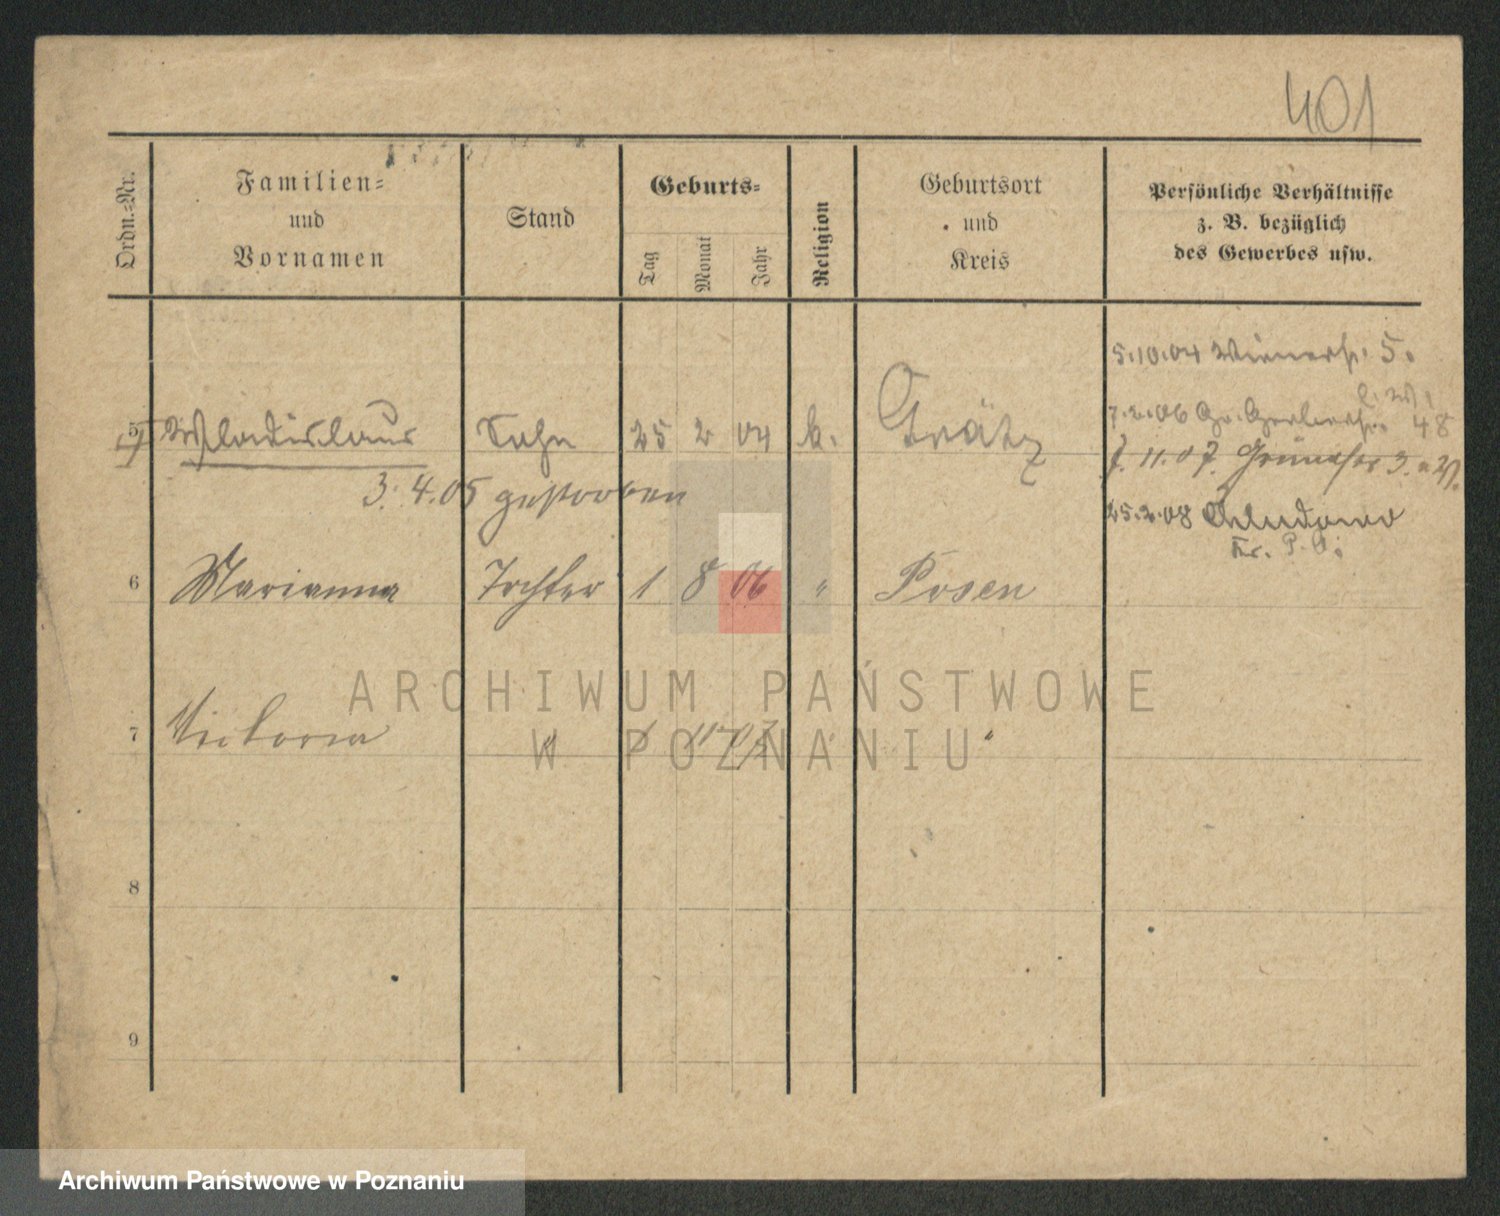 401
Ordn.=Nr.
Familien=
und
Vornamen
Stand
Geburts=
Tag
Monat
Jahr
Religion
Geburtsort
und
Kreis
Persönliche Verhältnisse
z. B. bezüglich
des Gewerbes usw.
5.10.04 Wienerstr. 5.
5 Wladislaus Sohn 25 2 04 k. Grätz
7.2.06 Gr. Gerberstr. 48
3.4.05 gestorben
7.11.07. 3.
25.2.08
Kr. P. O.
6 Marianna Tochter 1 8 06 " Posen
7 Victoria " 11 07 "
8
9
ARCHIWUM PAŃSTWOWE
W POZNANIU
Archiwum Państwowe w Poznaniu